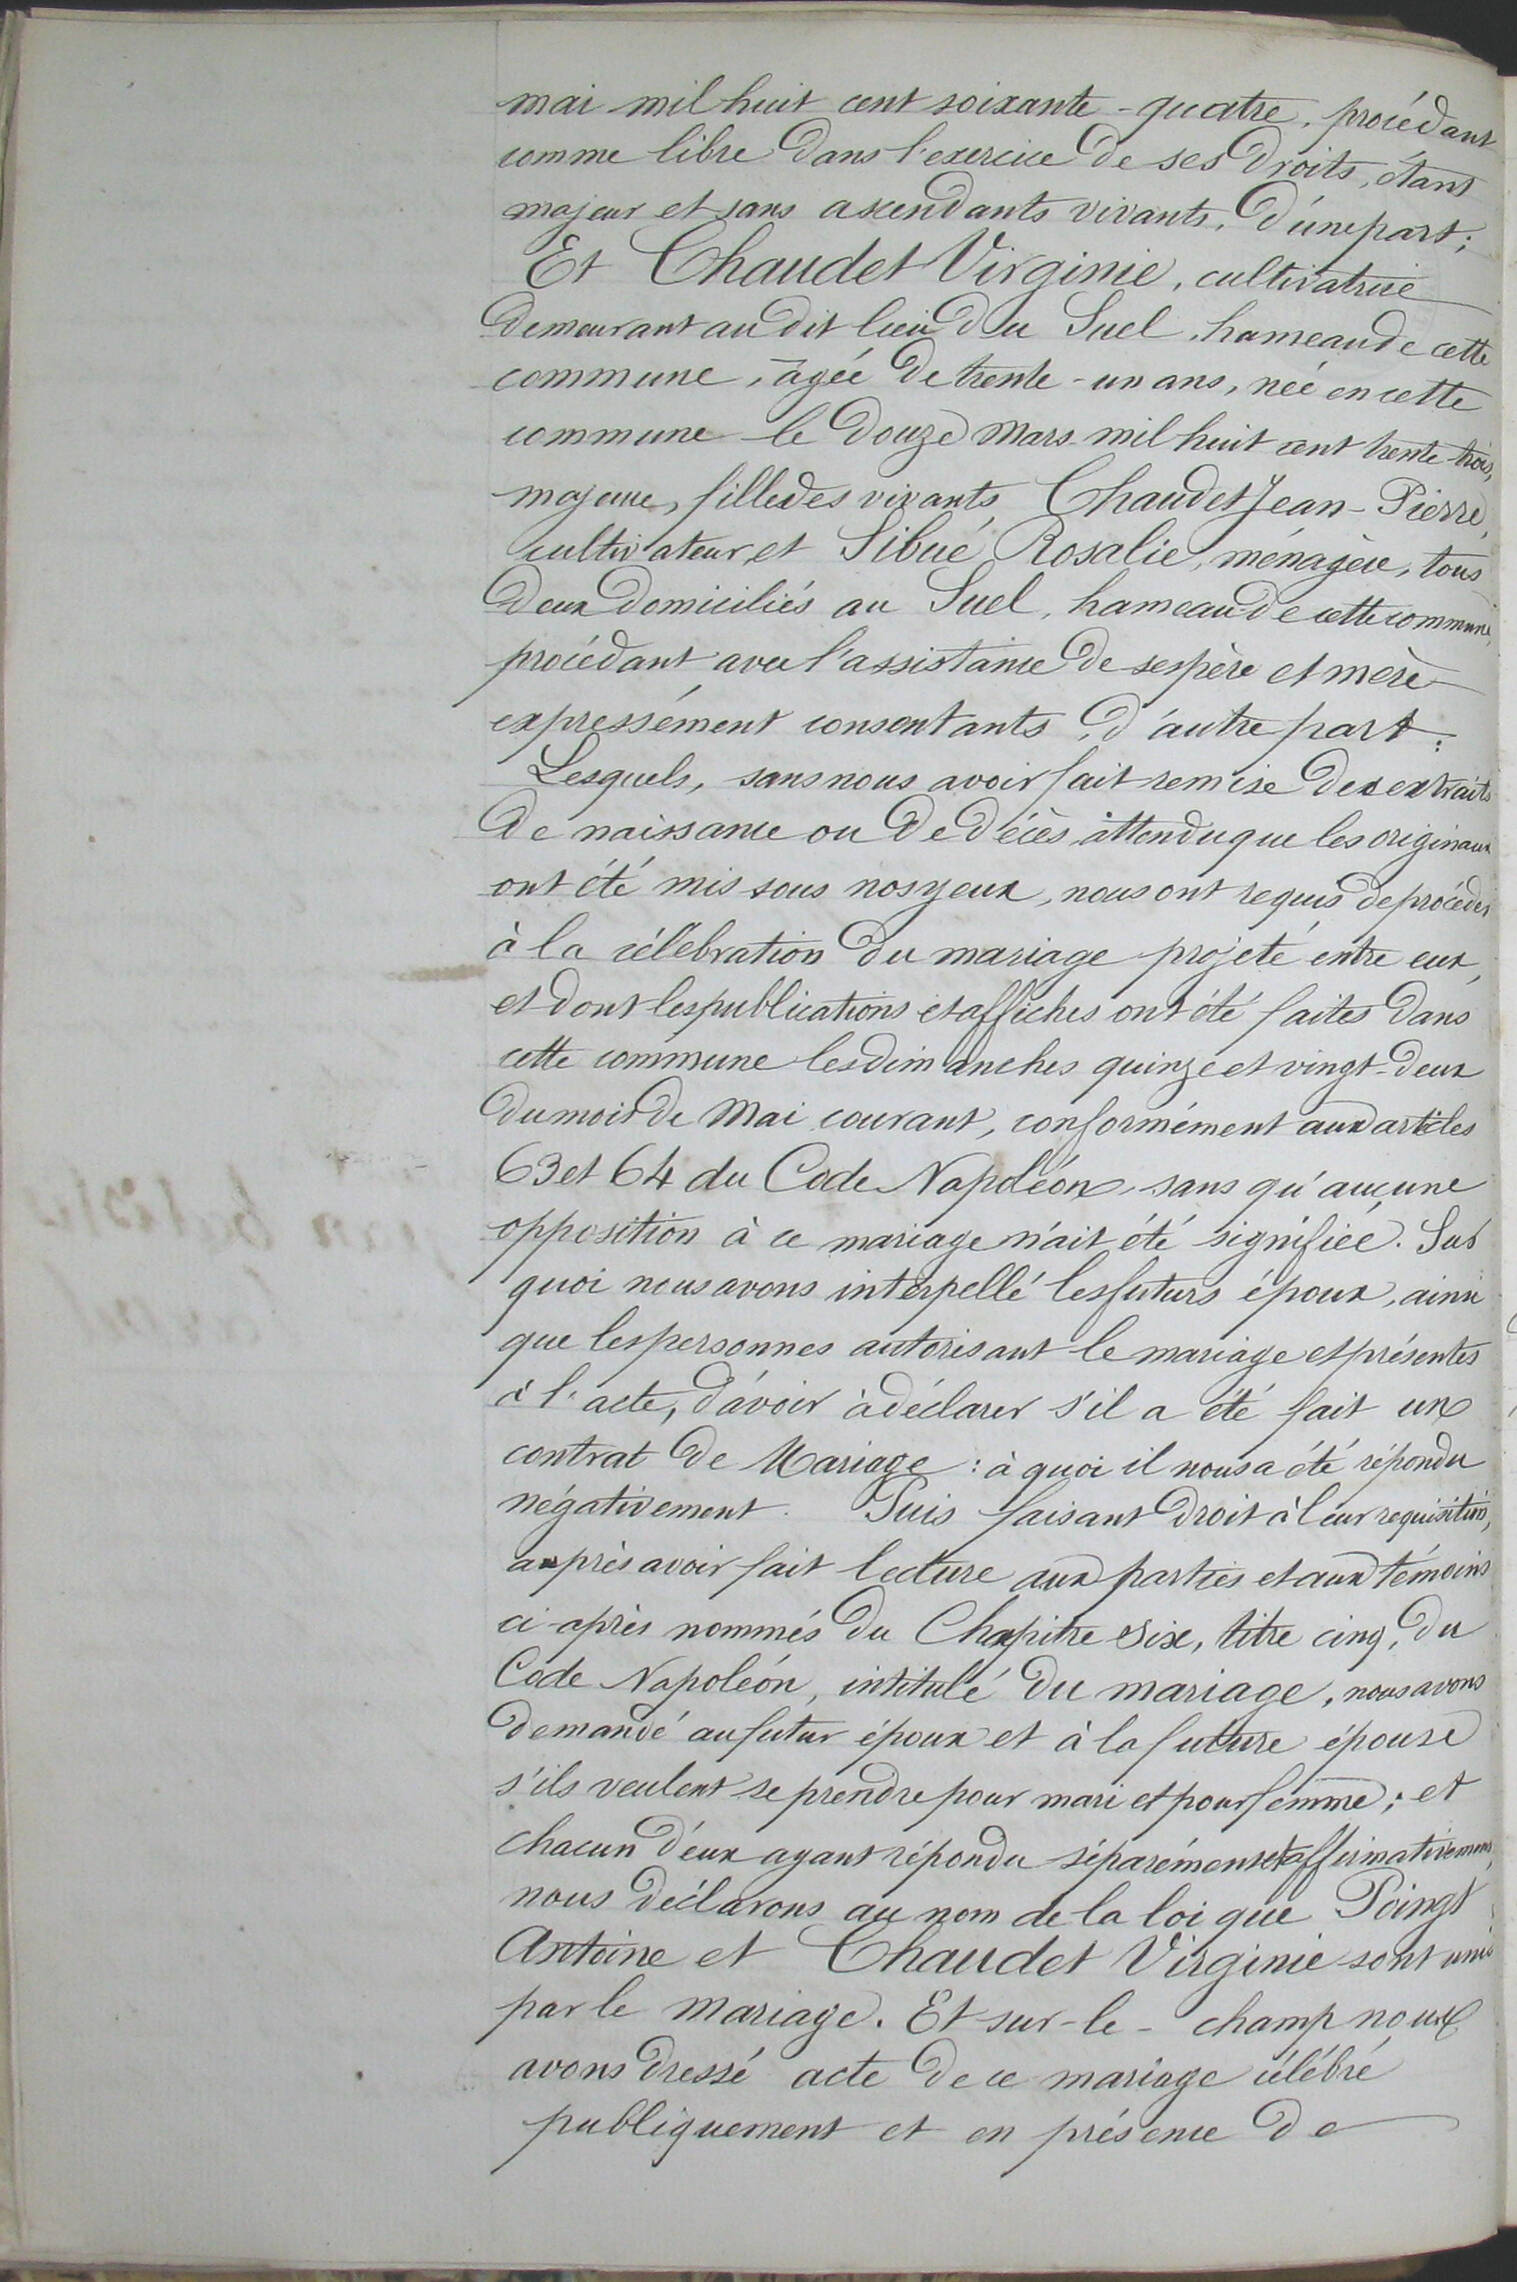 mai mil huit cent soixante-quatre, procédant
comme libre dans l'exercice de ses droits, étant
majeur et sans ascendants vivants, d'une part;
Et Chaudet Virginie, cultivatrice
demeurant au dit lieu du Suel, hameau de cette
commune, âgée de trente-un ans, née en cette
commune le douze mars mil huit cent trente trois,
majeure, fille des vivants Chaudet Jean-Pierre,
cultivateur et Sibué Rosalie, ménagère, tous
deux domiciliés au Suel, hameau de cette commune,
procédant avec l'assistance de ses père et mère
expressément consentants, d'autre part.
Lesquels, sans nous avoir fait remise des extraits
de naissance ou de décès, attendu que les originaux
ont été mis sous nos yeux, nous ont requis de procéder
à la célébration du mariage projeté entre eux,
et dont les publications et affiches ont été faites dans
cette commune les dimanches quinze et vingt-deux
du mois de Mai courant, conformément aux articles
63 et 64 du Code Napoléon, sans qu'aucune
opposition à ce mariage n'ait été signifiée. Sur
quoi nous avons interpellé les futurs époux, ainsi
que les personnes autorisant le mariage et présentes
à l'acte, d'avoir à déclarer s'il a été fait un
contrat de Mariage : à quoi il nous a été répondu
négativement. Puis faisant droit à leur requisition,
après avoir fait lecture aux parties et aux témoins
ci-après nommés du Chapitre six, titre cinq, du
Code Napoléon, intitulé du mariage, nous avons
demandé au futur époux et à la future épouse
s'ils veulent se prendre pour mari et pour femme; et
chacun d'eux ayant répondu séparément et affirmativement,
nous déclarons au nom de la loi que Poingt
Antoine et Chaudet Virginie sont unis
par le mariage. Et sur-le-champ nous
avons dressé acte de ce mariage célébré
publiquement et en présence de